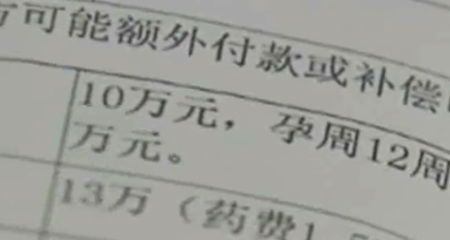 方可能额外付款或补偿
10万元，孕周12周
万元。
13万（药费1.